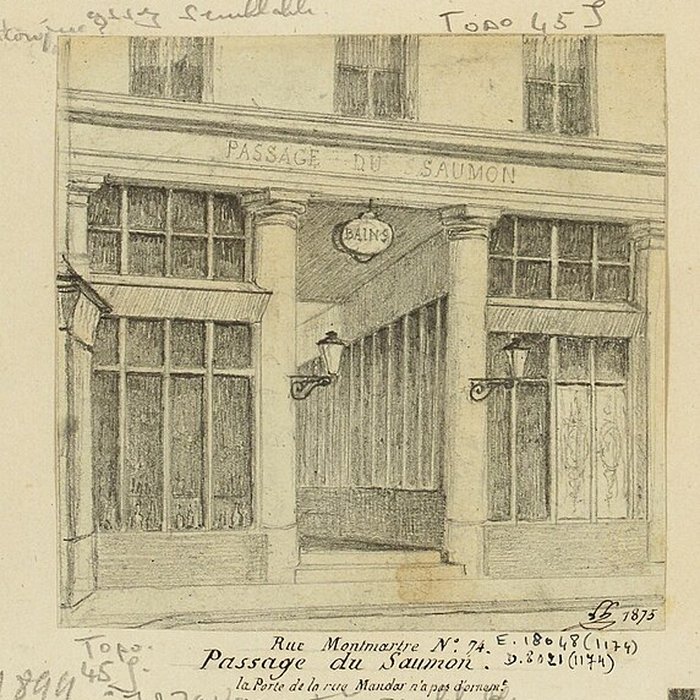 assez semblable.
Topo 45 J
PASSAGE DU SAUMON
BAINS
1875
Rue Montmartre N.º 74. E. 18048 (1174)
Passage du Saumon. D. 8021 (1174)
la Porte de la rue Mandar n'a pas d'ornem.ᵗ
Topo.
45 J.
1899